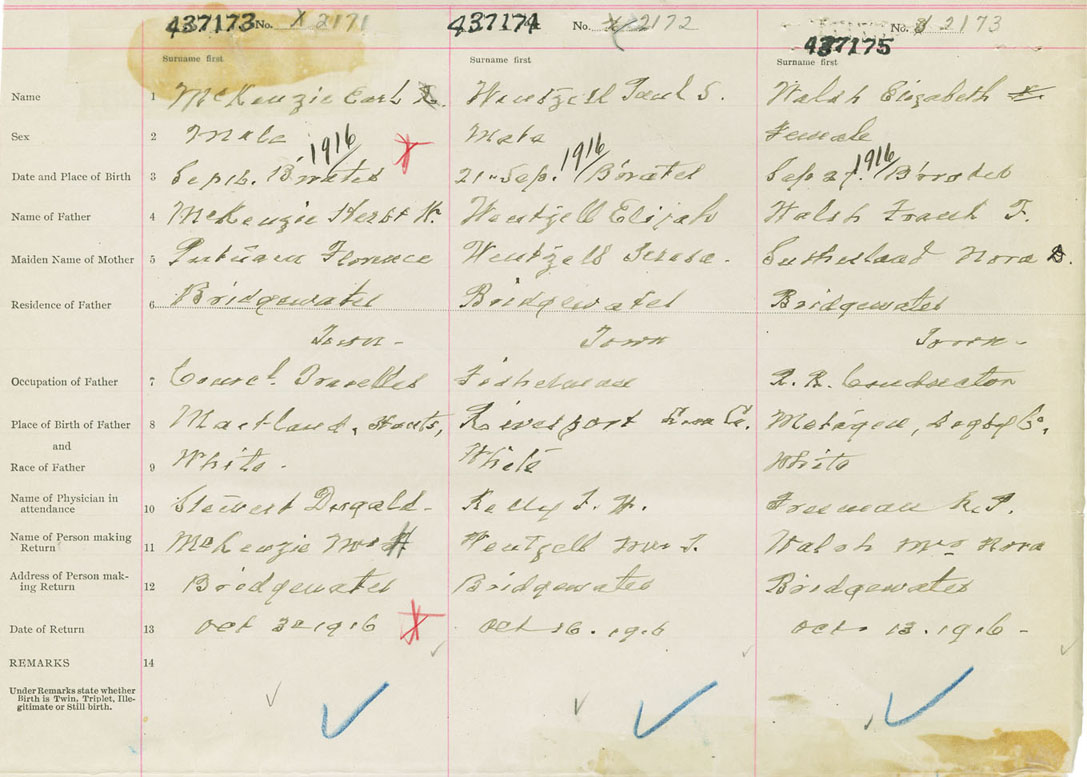 437173 No. X 2171 437174 No. X 2172 No. 2173
437175
Surname first Surname first Surname first
Name 1 McKenzie Earl Wentzell Paul S. Walsh Elizabeth
Sex 2 Male Male Female
1916 1916 1916
Date and Place of Birth 3 Sep 16. B'water 21" Sep. B'water Sep 27. B'water
Name of Father 4 McKenzie Herbt Wm Wentzell Elijah Walsh Frank F.
Maiden Name of Mother 5 Florence Wentzell Sutherland Nora
Residence of Father 6 Bridgewater Bridgewater Bridgewater
Town - Town Town -
Occupation of Father 7 Comcl. Traveller Fisherman R. R. Conductor
Place of Birth of Father 8 Maitland, Hants, Riversport Lun Co. Digby Co,
and
Race of Father 9 White - White White
Name of Physician in
attendance 10 Stewart Dugald - Kelly F. H. Freeman
Name of Person making
Return 11 McKenzie Mrs H Wentzell Mrs Walsh Mrs Nora
Address of Person mak-
ing Return 12 Bridgewater Bridgewater Bridgewater
Date of Return 13 Oct 1916 Oct 16. 1916 Oct. 13. 1916 -
REMARKS 14
Under Remarks state whether
Birth is Twin, Triplet, Ille-
gitimate or Still birth.